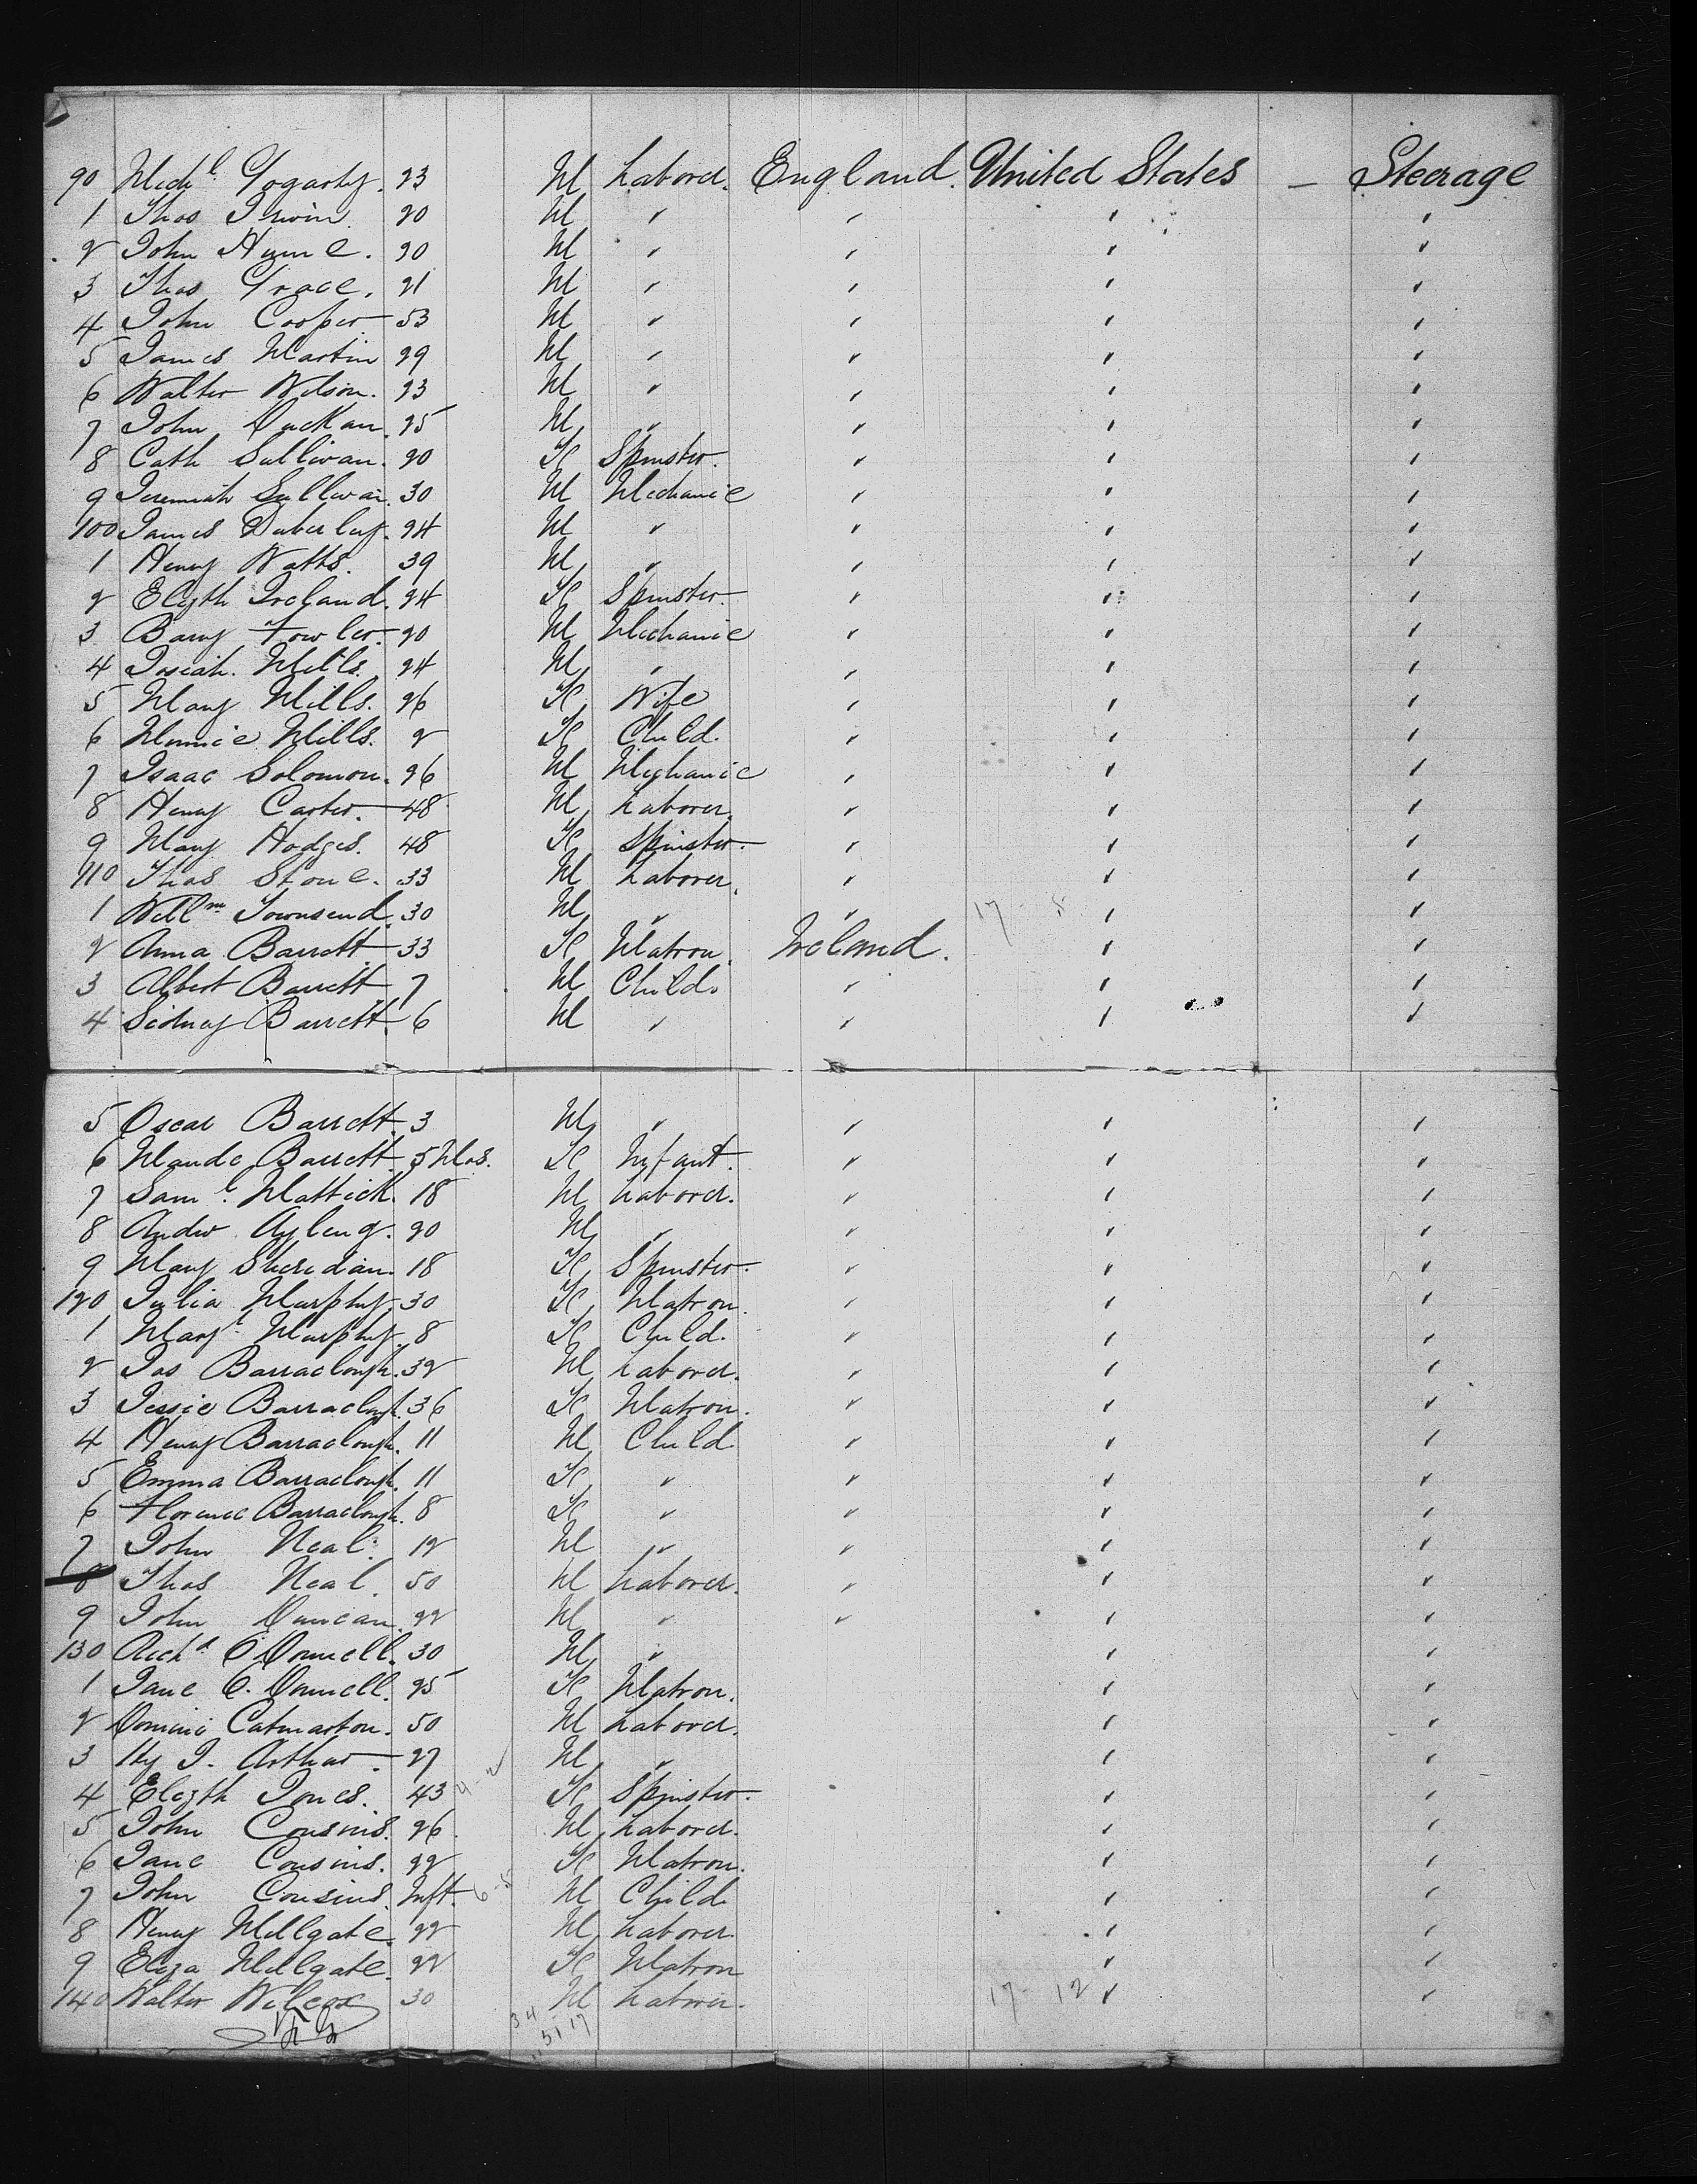 90 Mich^l Fogarty. 23 M Laborer. England. United States — Steerage
1 Thos Irwin 20 M " " " "
2 John Hume. 20 M " " " "
3 Thos Grace. 21 M " " " "
4 John Cooper 53 M " " " "
5 James Martin 29 M " " " "
6 Walter Wilson. 23 M " " " "
7 John 25 M " " " "
8 Cath Sullivan. 20 F Spinster. " " "
9 Jeremiah Sullivan. 30 M Mechanic " " "
100 James Duberley. 24 M " " " "
1 Henry Watts. 39 M " " " "
2 Elizth Ireland. 24 F Spinster. " " "
3 Barry Fowler. 20 M Mechanic " " "
4 Josiah. Mills. 24 M " " " "
5 Mary Mills. 26 F Wife " " "
6 Minnie Mills. 2 F Child. " " "
7 Isaac Solomon. 26 M Mechanic " " "
8 Henry Carter. 48 M Laborer. " " "
9 Mary Hodges. 48 F Spinster. " " "
110 Thos Stone. 33 M Laborer. " " "
1 Will^m Townsend. 30 M " " 17 - 5 " "
2 Anna Barrett 33 F Matron. Ireland. " "
3 Albert Barrett 7 M Child. " " "
4 Sidney Barrett. 6 M " " " "
5 Oscar Barrett. 3 M " " " "
6 Maude Barrett. 5 Mos. F Infant. " " "
7 Sam^l. Mattick. 18 M Laborer. " " "
8 Andw Ayling. 20 M " " " "
9 Mary Sheridan. 18 F Spinster. " " "
120 Julia Murphy. 30 F Matron. " " "
1 Marg^t Murphy. 8 F Child. " " "
2 Jos Barraclough. 32 M Laborer. " " "
3 Jessie Barraclough. 36 F Matron. " " "
4 Henry Barraclough. 11 M Child " " "
5 Emma Barraclough. 11 F " " " "
6 Florence Barraclough. 8 F " " " "
7 John Neal. 12 M " " " "
8 Thos Neal. 50 M Laborer. " " "
9 John Duncan. 22 M " " " "
130 Rich^d O'Donnell. 30 M " " "
1 Jane O'Donnell. 25 F Matron. " "
2 Dominic 50 M Laborer. " "
3 Hy J. Arthur. 27 M " " "
4 Elizth Jones. 43 F Spinster. " "
5 John Cousins. 26 M Laborer. " "
6 Jane Cousins. 22 F Matron. " "
7 John Cousins. Inft. 6 - 5 M Child " "
8 Henry Millgate. 22 M Laborer. " "
9 Eliza Millgate. 22 F Matron " "
140 Walter Wilcox 30 M Laborer. 17 - 12 " "
34
51 17